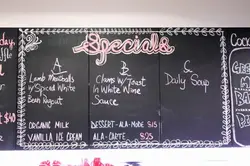 Specials
A
Lamb Meatballs
w/ Spiced White
Bean Yogurt
B
Clams w/ Toast
In White Wine
Sauce
C
Daily Soup
ORGANIC MILK
VANILLA ICE CREAM
DESSERT-ALA-MODE $15
ALA-CARTE $25